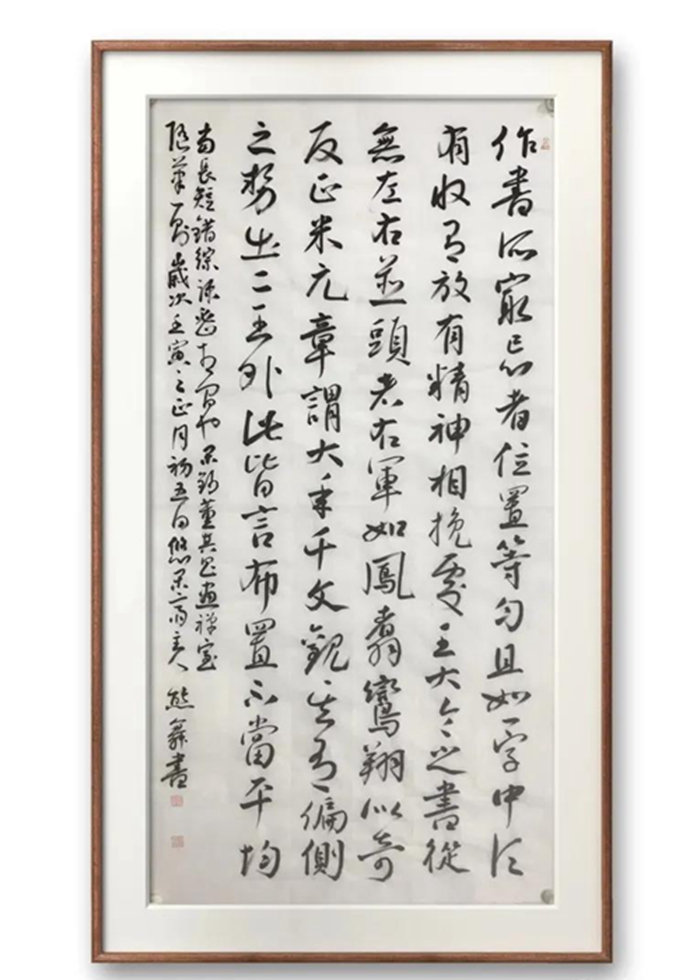 作書所㝡忌者位置等勻且如一字中須
有收有放有精神相挽處王大令之書從
無左右並頭者右軍如鳳翥鸞翔似奇
反正米元章謂大年千文觀其有偏側
之勢出二王外此皆言布置不當平均
當長短錯綜疎密相間也董其昌畫禪室
隨筆一則歲次壬寅之正月初五日悠齋主人熊舞書